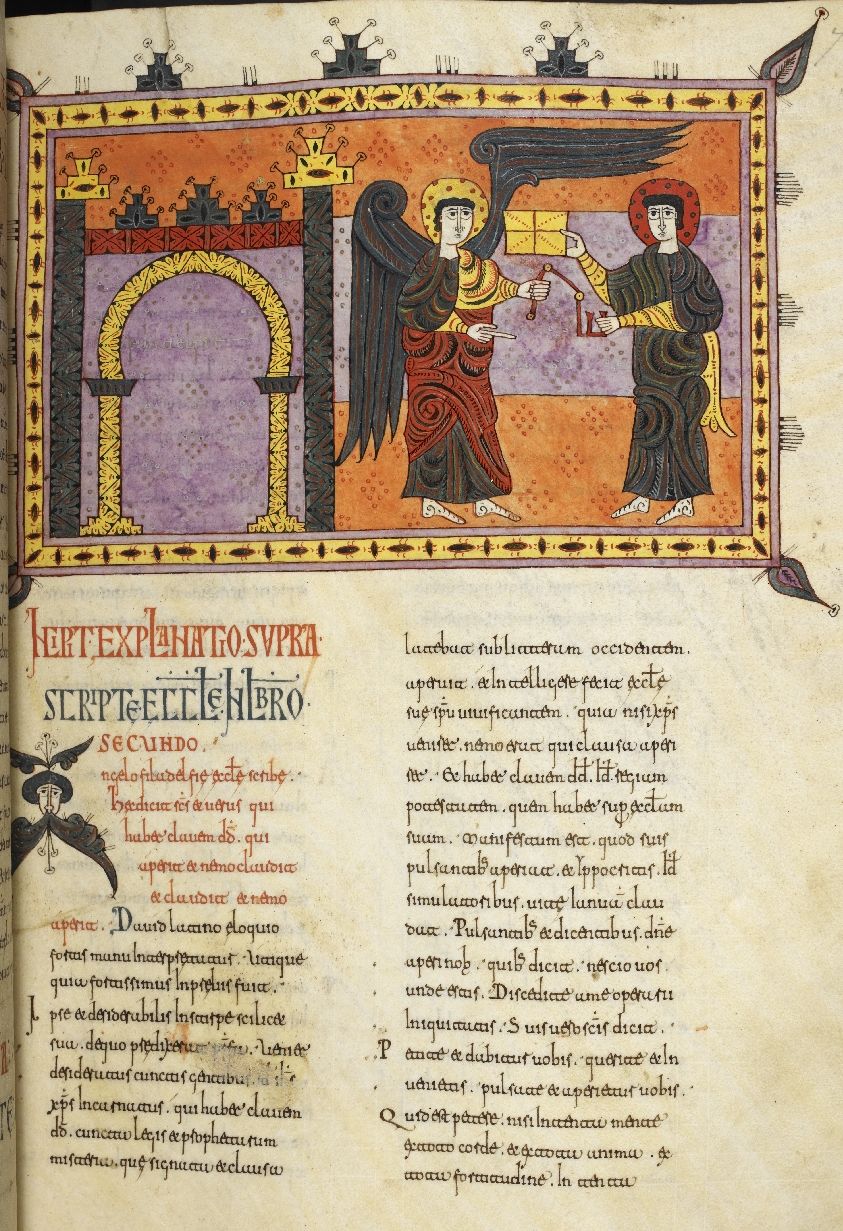 INCIPIT EXPLANATIO SUPRA
SCRIPTE ECCLE IN LIBRO
SECUNDO.
ngelo filadelfie eccle scribe.
Hec dicit scs & uerus qui
habet clauem dd. qui
aperit & nemo claudit
& claudit & nemo
aperit. Dauid latino eloquio
fortis manu Interpretatus. Utique
quia fortissimus In preliis fuit.
Ipse & desiderabilis In stirpe scilicet
sua. de quo predixerat. Veniet
desideratus cunctis gentibus.
xps Incarnatus. qui habet clauem
dd. cuncta legis & prophetarum
misteria. que signata & clausa
latebat sub litterarum occidentem.
aperuit. & Intelligere fecit eccle
sue spu uiuificantem. quia nisi xps
ueniret. nemo erat qui clausa aperi
ret. Et habet clauem dd. Id. regiam
potestatem. quam habet super ecclam
suam. Manifestum est. quod suis
pulsantibus aperiat. & Ippocritis. Id
simulatoribus. uite Ianua clau
dat. Pulsantibs & dicentibus. dne
aperi nob. quibs dicit. nescio uos.
unde estis. Discedite a me operarii
Iniquitatis. Suis uero scis dicit.
Petite & dabitur uobis. querite & In
uenietis. pulsate & aperietur uobis.
Quid est petere. nisi Intenta mente
ex toto corde. & ex tota anima. ex
tota fortitudine. In tenta